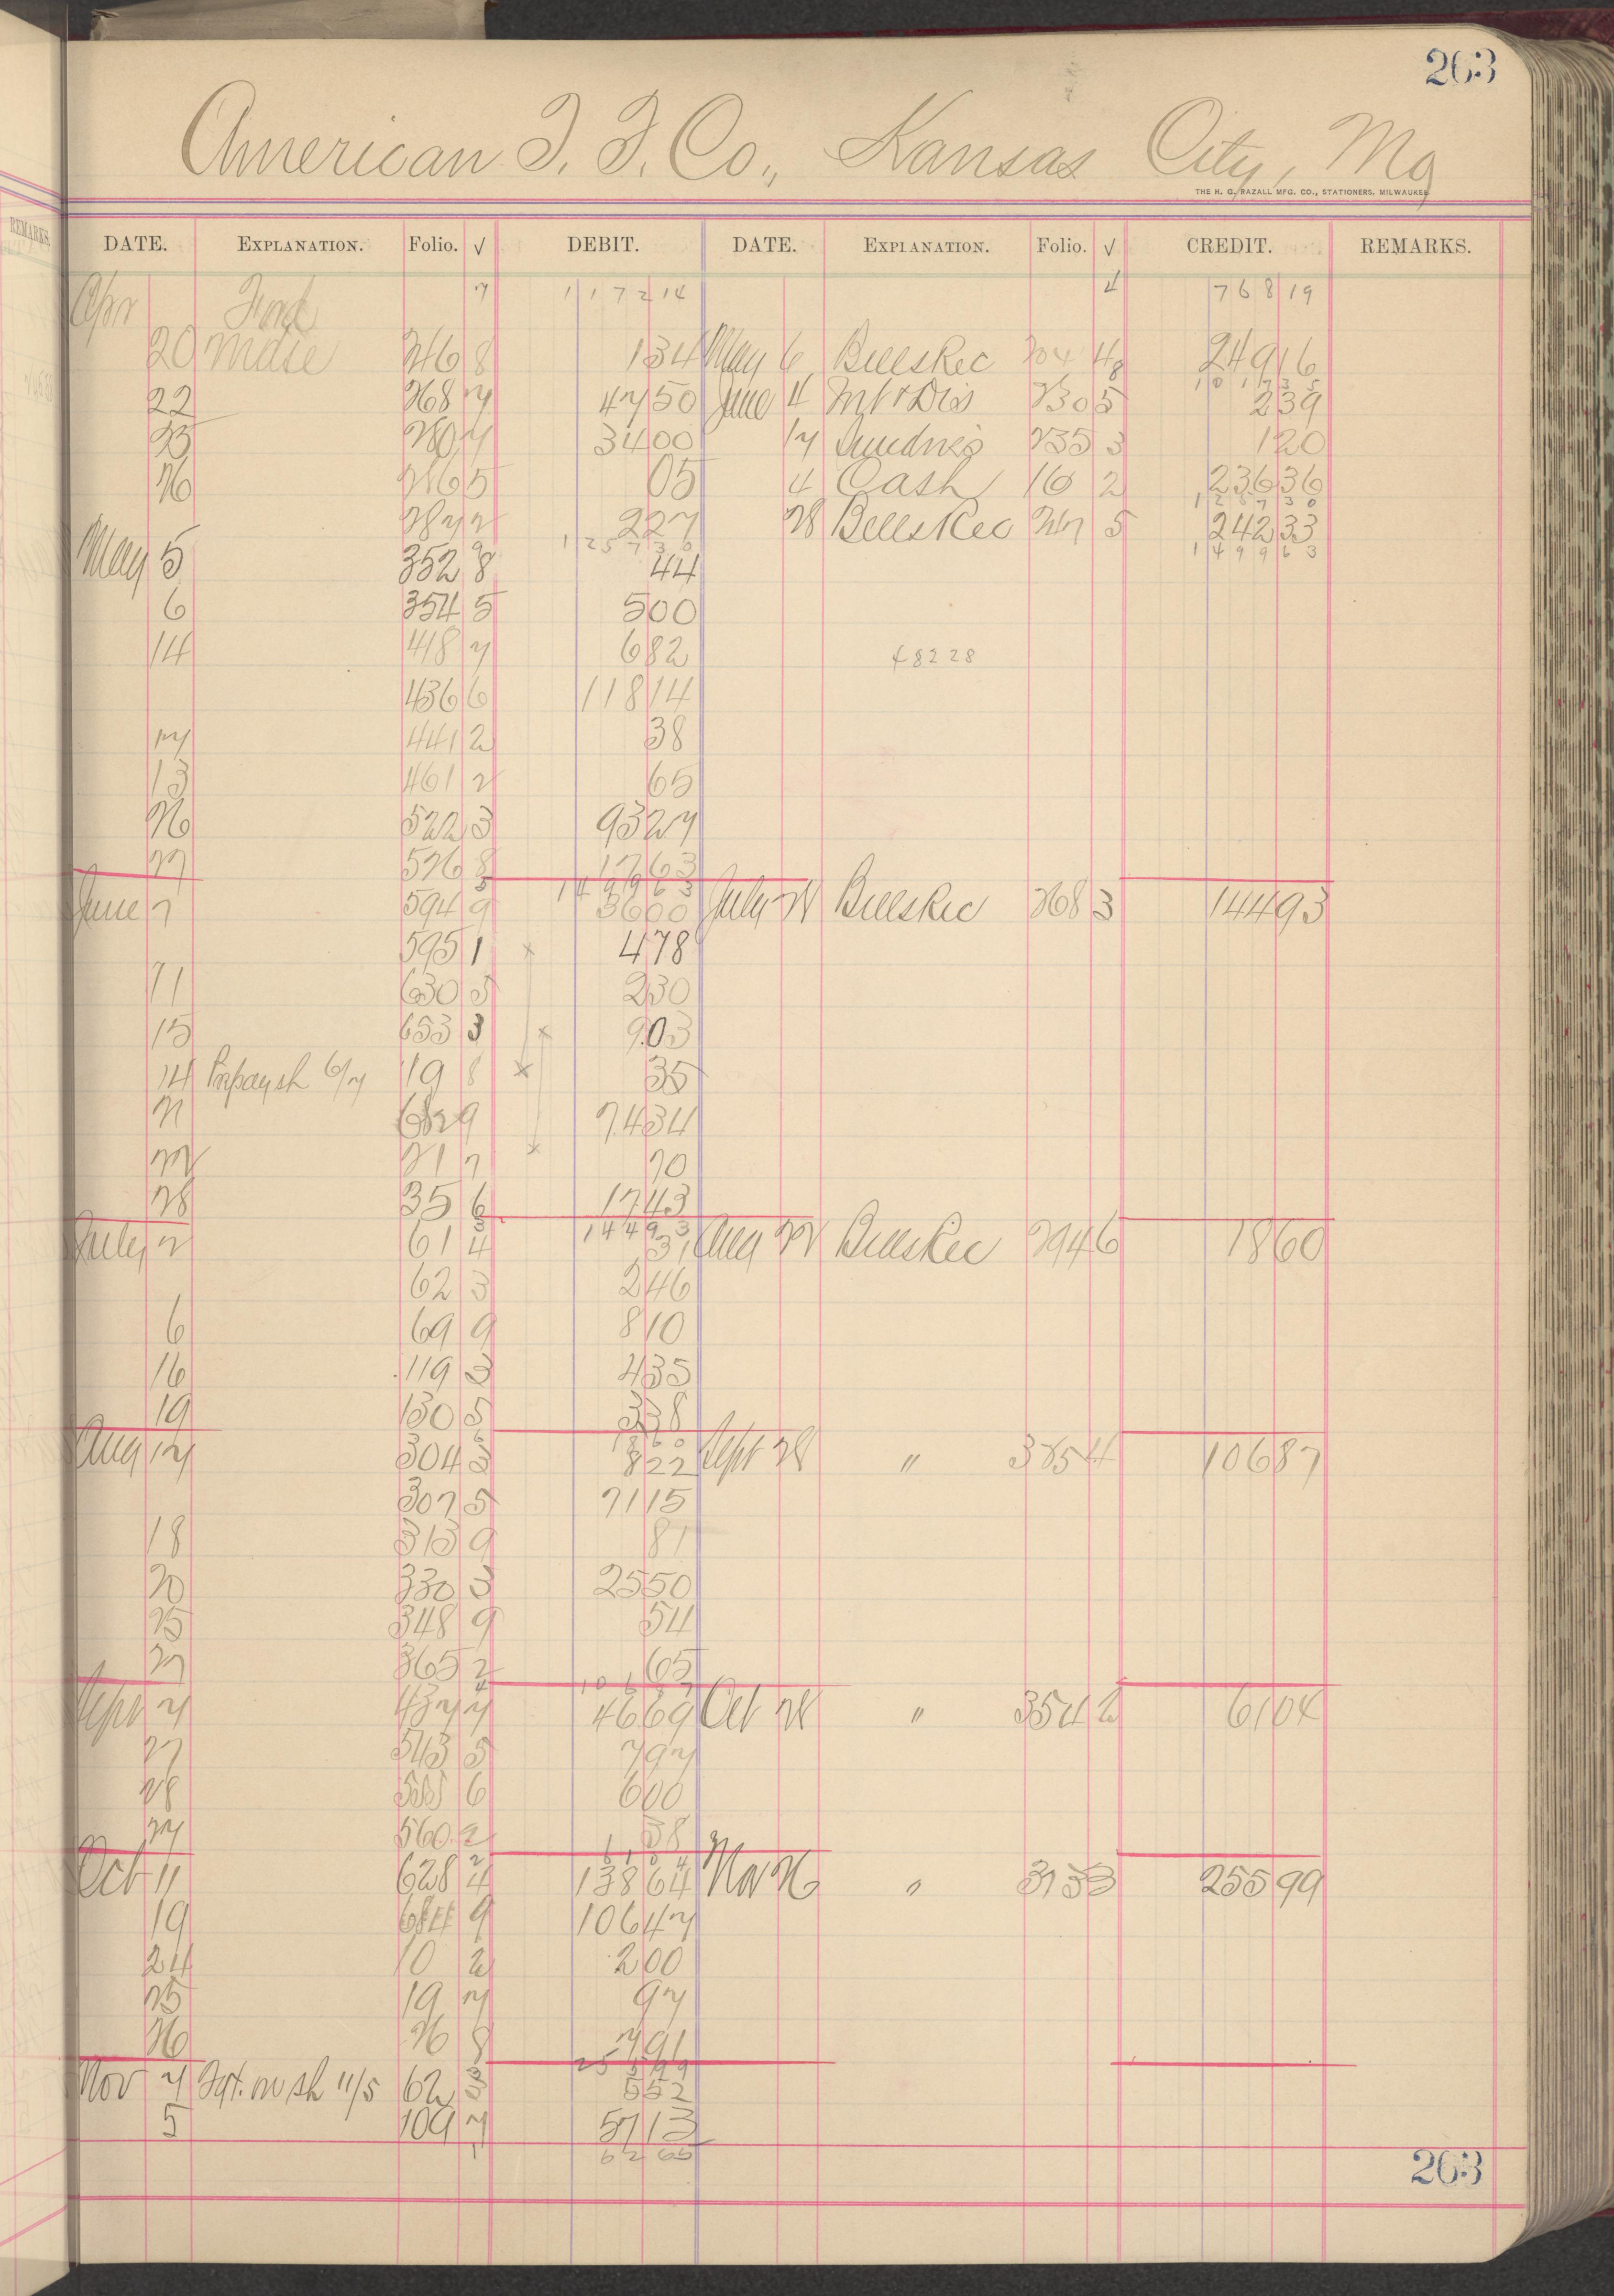 263
American T. T. Co., Kansas City, Mo
THE H. G. RAZALL MFG. CO., STATIONERS, MILWAUKEE.
REMARKS
DATE. EXPLANATION. Folio. √ DEBIT. DATE. EXPLANATION. Folio. √ CREDIT. REMARKS.
Apr 7 11 7 2 14 4 7 6 8 19
20 Mdse 246 8 1 34 May 6 Bills Rec 204 4 249 16
22 268 7 47 50 June 4 Int & Dis 230 5 2 39
25 280 7 34 00 17 Sundries 235 3 1 20
26 286 5 05 4 Cash 16 2 236 36
287 2 2 27 28 Bills Rec 247 5 242 33
1 2 5 7 3 0 1 4 9 9 6 3
May 5 352 8 44
6 354 5 5 00
14 418 7 6 82 48228
436 6 118 14
17 441 2 38
13 461 2 65
26 522 3 93 27
27 526 8 17 63
1 4 9 9 6 3
June 7 594 9 36 00 July 28 Bills Rec 268 3 144 93
595 1 x 4 78
11 630 5 2 30
15 653 3 x 9 03
14 Prepay sh 6/7 19 8 x 35
21 682 9 74 34
22 21 7 x 70
28 35 6 17 43
1 4 4 9 3
July 2 61 4 31 Aug 28 Bills Rec 294 6 18 60
62 3 2 46
6 69 9 8 10
16 119 3 4 35
19 130 5 3 38
Aug 17 304 3 8 22 Sept 28 " 385 4 106 87
307 5 71 15
18 313 9 81
20 330 3 25 50
25 348 9 54
27 365 2 65
1 0 6 8 7
Sept 7 437 7 46 69 Oct 28 " 354 2 61 04
27 543 5 7 97
28 555 6 6 00
27 560 2 38
6 1 0 4
Oct 11 628 4 138 64 Nov 26 " 315 3 255 99
19 684 9 106 47
24 10 2 2 00
25 19 7 97
26 26 8 7 91
2 5 5 9 9
Nov 7 Frt. on sh 11/5 62 5 52
5 109 7 57 13
6 2 65
263